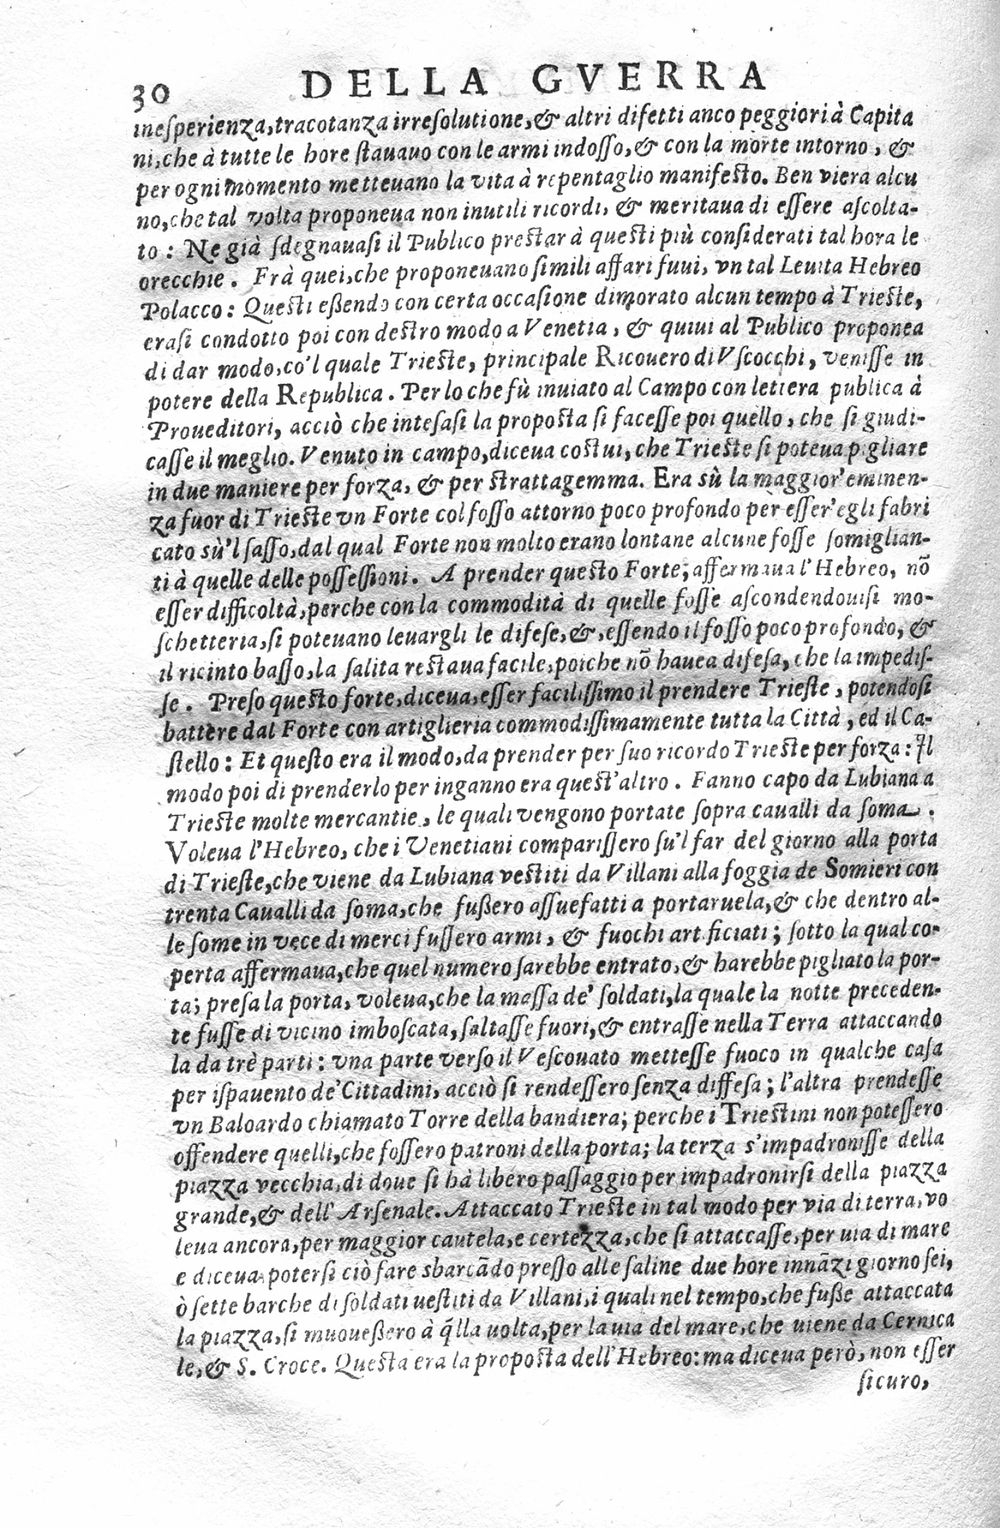 30 DELLA GVERRA
inesperienza, tracotanza irresolutione, & altri difetti anco peggiori à Capita
ni, che à tutte le hore stauauo con le armi indosso, & con la morte intorno, &
per ogni momento metteuano la vita à repentaglio manifesto. Ben viera alcu
no, che tal volta proponeua non inutili ricordi, & meritaua di essere ascolta-
to: Ne già sdegnauasi il Publico prestar à questi più considerati tal hora le
orecchie. Frà quei, che proponeuano simili affari fuui, vn tal Leuita Hebreo
Polacco: Questi eßendo con certa occasione dimorato alcun tempo à Trieste,
erasi condotto poi con destro modo a Venetia, & quiui al Publico proponea
di dar modo, co'l quale Trieste, principale Ricouero di Vscocchi, venisse in
potere della Republica. Per lo che fù inuiato al Campo con lettera publica à
Proueditori, acciò che intesasi la proposta si facesse poi quello, che si giudi-
casse il meglio. Venuto in campo, diceua costui, che Trieste si poteua pigliare
in due maniere per forza, & per strattagemma. Era sù la maggior' eminen-
za fuor di Trieste vn Forte col fosso attorno poco profondo per esser' egli fabri
cato sù'l sasso, dal qual Forte non molto erano lontane alcune fosse somiglian-
ti à quelle delle possessioni. A prender questo Forte, affermaua l'Hebreo, nõ
esser difficoltà, perche con la commodità di quelle fosse ascondendouisi mo-
schetteria, si poteuano leuargli le difese, &, essendo il fosso poco profondo, &
il ricinto basso, la salita restaua facile, poiche nõ hauea difesa, che la impedis-
se. Preso questo forte, diceua, esser facilissimo il prendere Trieste, potendosi
battere dal Forte con artiglieria commodissimamente tutta la Città, ed il Ca-
stello: Et questo era il modo, da prender per suo ricordo Trieste per forza: Il
modo poi di prenderlo per inganno era quest'altro. Fanno capo da Lubiana a
Trieste molte mercantie, le quali vengono portate sopra caualli da soma.
Voleua l'Hebreo, che i Venetiani comparissero su'l far del giorno alla porta
di Trieste, che viene da Lubiana vestiti da Villani alla foggia de Somieri con
trenta Caualli da soma, che fußero assuefatti a portaruela, & che dentro al-
le some in vece di merci fussero armi, & fuochi art ficiati; sotto la qual co-
perta affermaua, che quel numero sarebbe entrato, & harebbe pigliato la por-
ta; presa la porta, voleua, che la massa de' soldati, la quale la notte preceden-
te fusse di vicino imboscata, saltasse fuori, & entrasse nella Terra attaccando
la da trè parti: vna parte verso il Vescouato mettesse fuoco in qualche casa
per ispauento de' Cittadini, acciò si rendessero senza diffesa; l'altra prendesse
vn Baloardo chiamato Torre della bandiera; perche i Triestini non potessero
offendere quelli, che fossero patroni della porta; la terza s'impadronisse della
piazza vecchia, di doue si hà libero passaggio per impadronirsi della piazza
grande, & dell' Arsenale. Attaccato Trieste in tal modo per via di terra, vo
leua ancora, per maggior cautela, e certezza, che si attaccasse, per uia di mare
e diceua potersi ciò fare sbarcãdo presso alle saline due hore innãzi giorno sei,
ò sette barche di soldati uestiti da Villani, i quali nel tempo, che fuße attaccata
la piazza, si mouessero à q̃lla uolta, per la uia del mare, che uiene da Cernica
le, & S. Croce. Questa era la proposta dell'Hebreo: ma diceua però, non esser
sicuro,